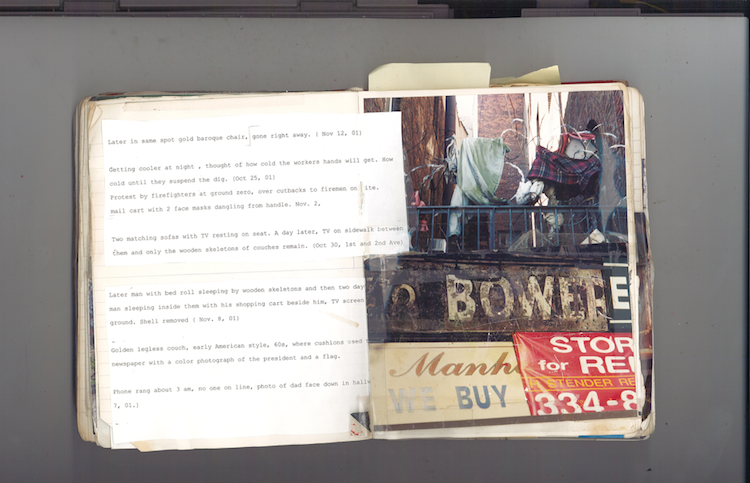 Later in same spot gold baroque chair, gone right away. ( Nov 12, 01)
Getting cooler at night , thought of how cold the workers hands will get. How
cold until they suspend the dig. (Oct 25, 01)
Protest by firefighters at ground zero, over cutbacks to firemen on ite.
mail cart with 2 face masks dangling from handle. Nov. 2,
Two matching sofas with TV resting on seat. A day later, TV on sidewalk between
them and only the wooden skeletons of couches remain. (Oct 30, 1st and 2nd Ave)
Later man with bed roll sleeping by wooden skeletons and then two day
man sleeping inside them with his shopping cart beside him, TV screen
ground. Shell removed ( Nov. 8, 01)
Golden legless couch, early American style, 60s, where cushions used
newspaper with a color photograph of the president and a flag.
Phone rang about 3 am, no one on line, photo of dad face down in hallw
7, 01.)
BOWER
E
Manh
WE BUY
STOR
for RE
STENDER RE
334-8